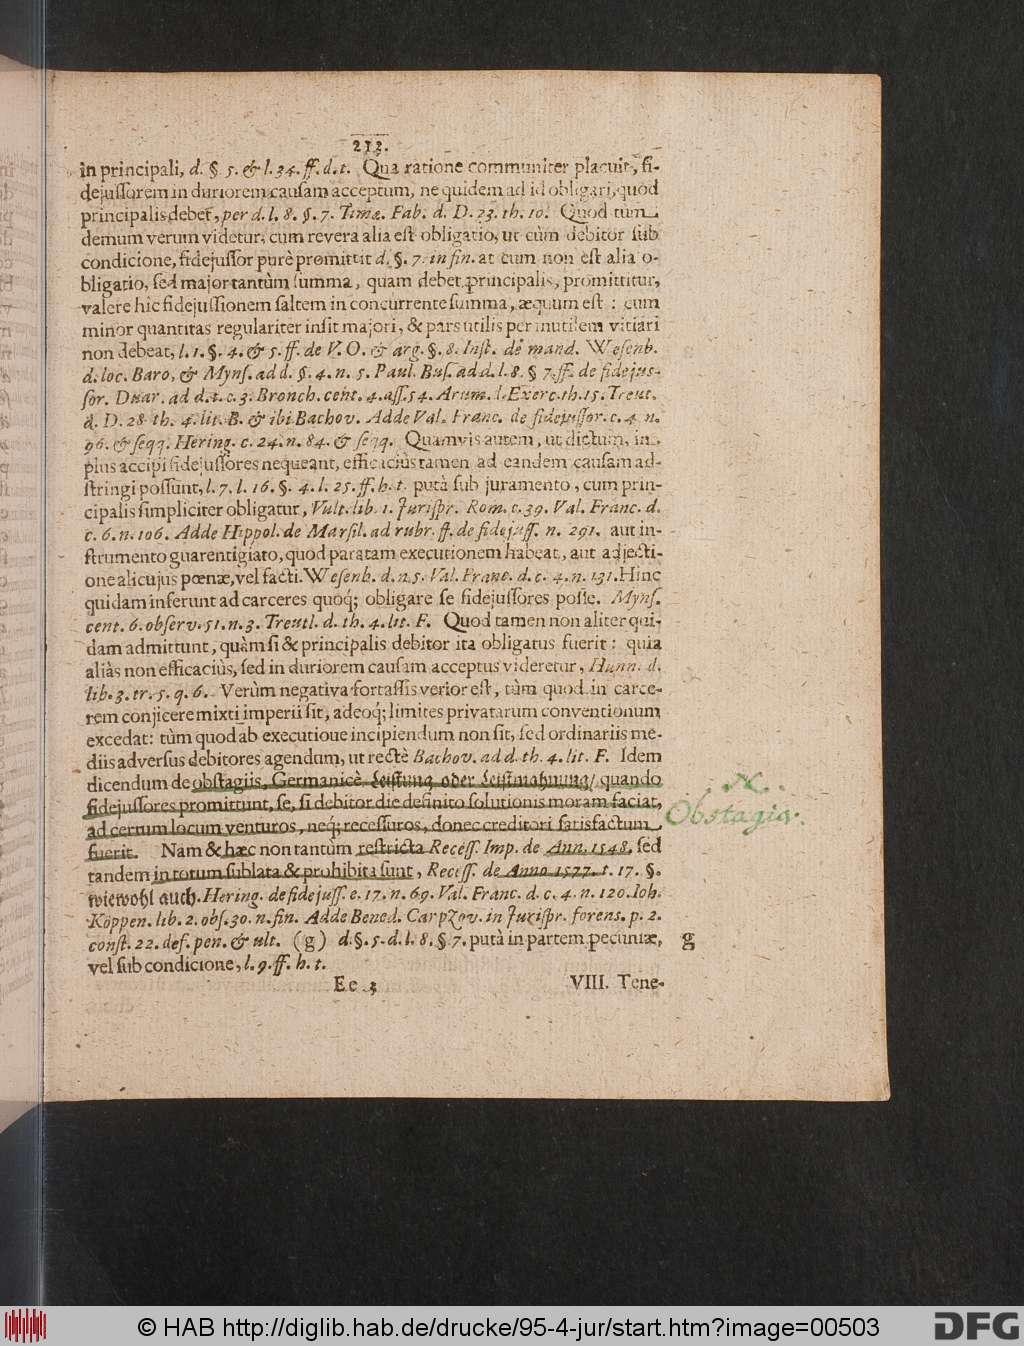 213.
in principali, d. §. 5. & l. 34. ff. d. t. Qua ratione communiter placuit, fi-
dejussorem in duriorem causam acceptum, ne quidem ad id obligari, quod
principalis debet, per d. l. 8. §. 7. Timæ. Fab. d. D. 23. th. 10. Quod tùm
demum verum videtur, cum revera alia est obligatio, ut cùm debitor sub
condicione, fidejussor purè promittit d. §. 7. in fin. at cum non est alia o-
bligatio, sed major tantùm summa, quam debet principalis, promittitur,
valere hic fidejussionem saltem in concurrente summa, æquum est: cum
minor quantitas regulariter insit majori, & pars utilis per inutilem vitiari
non debeat, l. 1. §. 4. & 5. ff. de V. O. & arg. §. 8. Inst. de mand. Wesenb.
d. loc. Baro, & Myns. ad d. §. 4. n. 5. Paul. Bus. ad d. l. 8. § 7. ff. de fidejus-
sor. Duar. ad d. t. c. 3. Bronch. cent. 4. ass. 54. Arum. l. Exerc. th. 15. Treut.
d. D. 28 th. 4. lit. B. & ibi Bachov. Adde Val. Franc. de fidejussor. c. 4. n.
96. & seqq. Hering. c. 24. n. 84. & seqq. Quamvis autem, ut dictum, in
plus accipi fidejussores nequeant, efficaciùs tamen ad eandem causam ad-
stringi possunt, l. 7. l. 16. §. 4. l. 25. ff. h. t. putà sub juramento, cum prin-
cipalis simpliciter obligatur, Vult. lib. 1. Jurispr. Rom. c. 39. Val. Franc. d.
c. 6. n. 106. Adde Hippol. de Marsil. ad rubr. ff. de fidejuss. n. 291. aut in-
strumento guarentigiato, quod paratam executionem habeat, aut adjecti-
one alicujus pœnæ, vel facti. Wesenb. d. n. 5. Val. Franc. d. c. 4. n. 131. Hinc
quidam inferunt ad carceres quoq; obligare se fidejussores posse. Myns.
cent. 6. observ. 51. n. 3. Treutl. d. th. 4. lit. F. Quod tamen non aliter qui-
dam admittunt, quàm si & principalis debitor ita obligatus fuerit: quia
aliàs non efficaciùs, sed in duriorem causam acceptus videretur, Hunn. d.
lib. 3. tr. 5. q. 6. Verùm negativa fortassis verior est, tùm quod in carce-
rem conjicere mixti imperii sit, adeoq; limites privatarum conventionum
excedat: tùm quod ab executioue incipiendum non sit, sed ordinariis me-
diis adversus debitores agendum, ut rectè Bachov. ad d. th. 4. lit. F. Idem
dicendum de obstagiis, Germanicè Leistung oder Leistmahnung/ quando
fidejussores promittunt, se, si debitor die definito solutionis moram faciat,
ad certum locum venturos, neq; recessuros, donec creditori satisfactum
fuerit. Nam & hæc non tantùm restricta Recess. Imp. de Ann. 1548. sed
tandem in totum sublata & prohibita sunt, Recess. de Anno 1577. t. 17. §.
wiewohl auch. Hering. de fidejuss. c. 17. n. 69. Val. Franc. d. c. 4. n. 120. Ioh.
Köppen. lib. 2. obs. 30. n. fin. Adde Bened. Carpzov. in Jurispr. forens. p. 2.
const. 22. def. pen. & ult. (g) d. §. 5. d. l. 8. § 7. putà in partem pecuniæ,
vel sub condicione, l. 9. ff. h. t.
Ee 3 VIII. Tene-
N.
Obstagia.
g
© HAB http://diglib.hab.de/drucke/95-4-jur/start.htm?image=00503
DFG